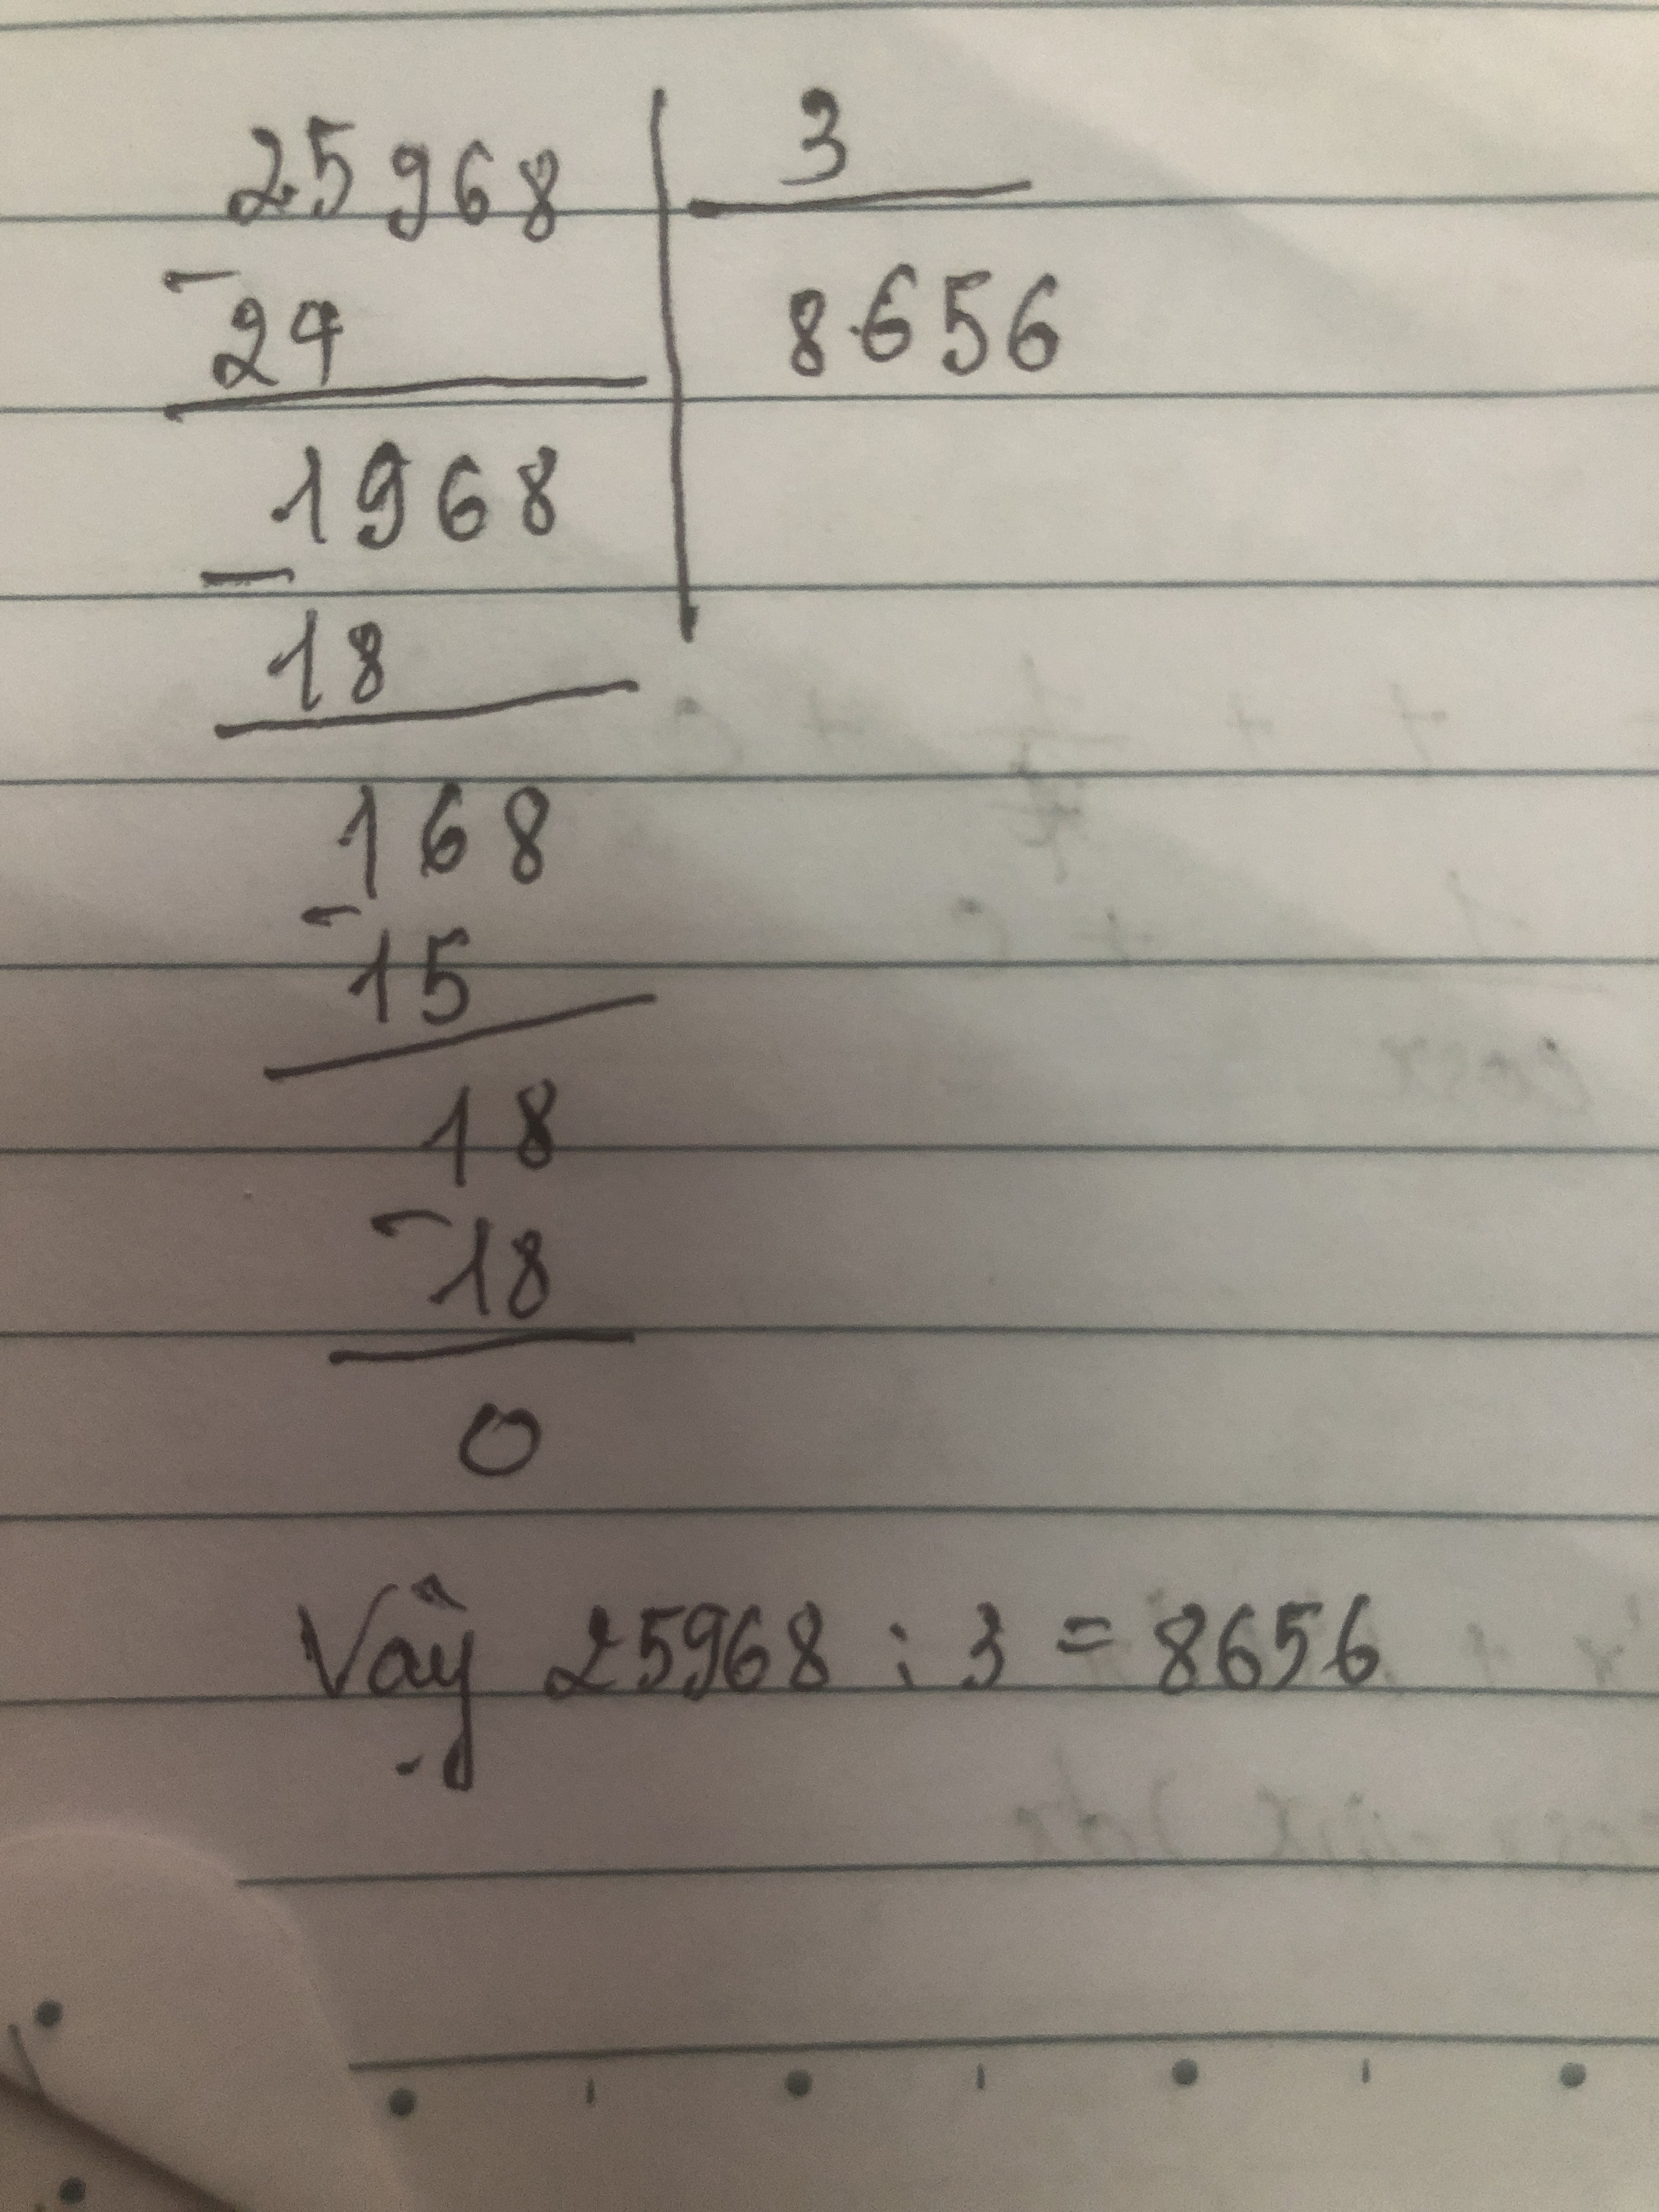 25968 3
- 24 8656
1968
- 18
168
- 15
18
- 18
0
Vậy 25968 : 3 = 8656